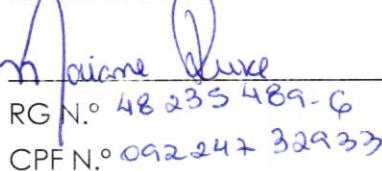 RG N.º 48 235 489-6
CPF N.º 092 247 329 33